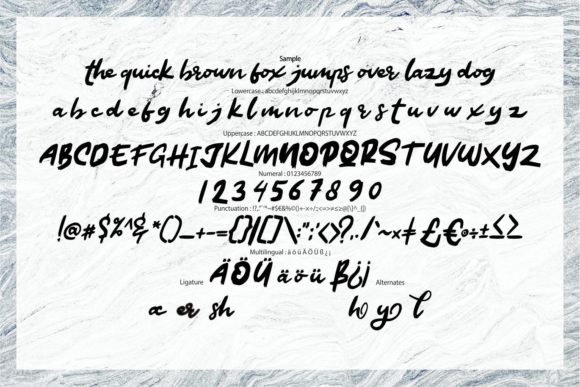 Sample
the quick brown fox jumps over lazy dog
Lowercase : abcdefghijklmnopqrstuvwxyz
a b c d e f g h i j k l m n o p q r s t u v w x y z
Uppercase : ABCDEFGHIJKLMNOPQRSTUVWXYZ
ABCDEFGHIJKLMNOPQRSTUVWXYZ
Numeral : 0123456789
1 2 3 4 5 6 7 8 9 0
Punctuation :
!@#$%^& *()_+-={}|[]\:";'<>?,./`~×≠£€©÷±≤≥
Multilingual : ä ö ü Ä Ö Ü ß ¿ ¡
ÄÖÜ äöü ß¿¡
Ligature
Alternates
x er sh
h y l